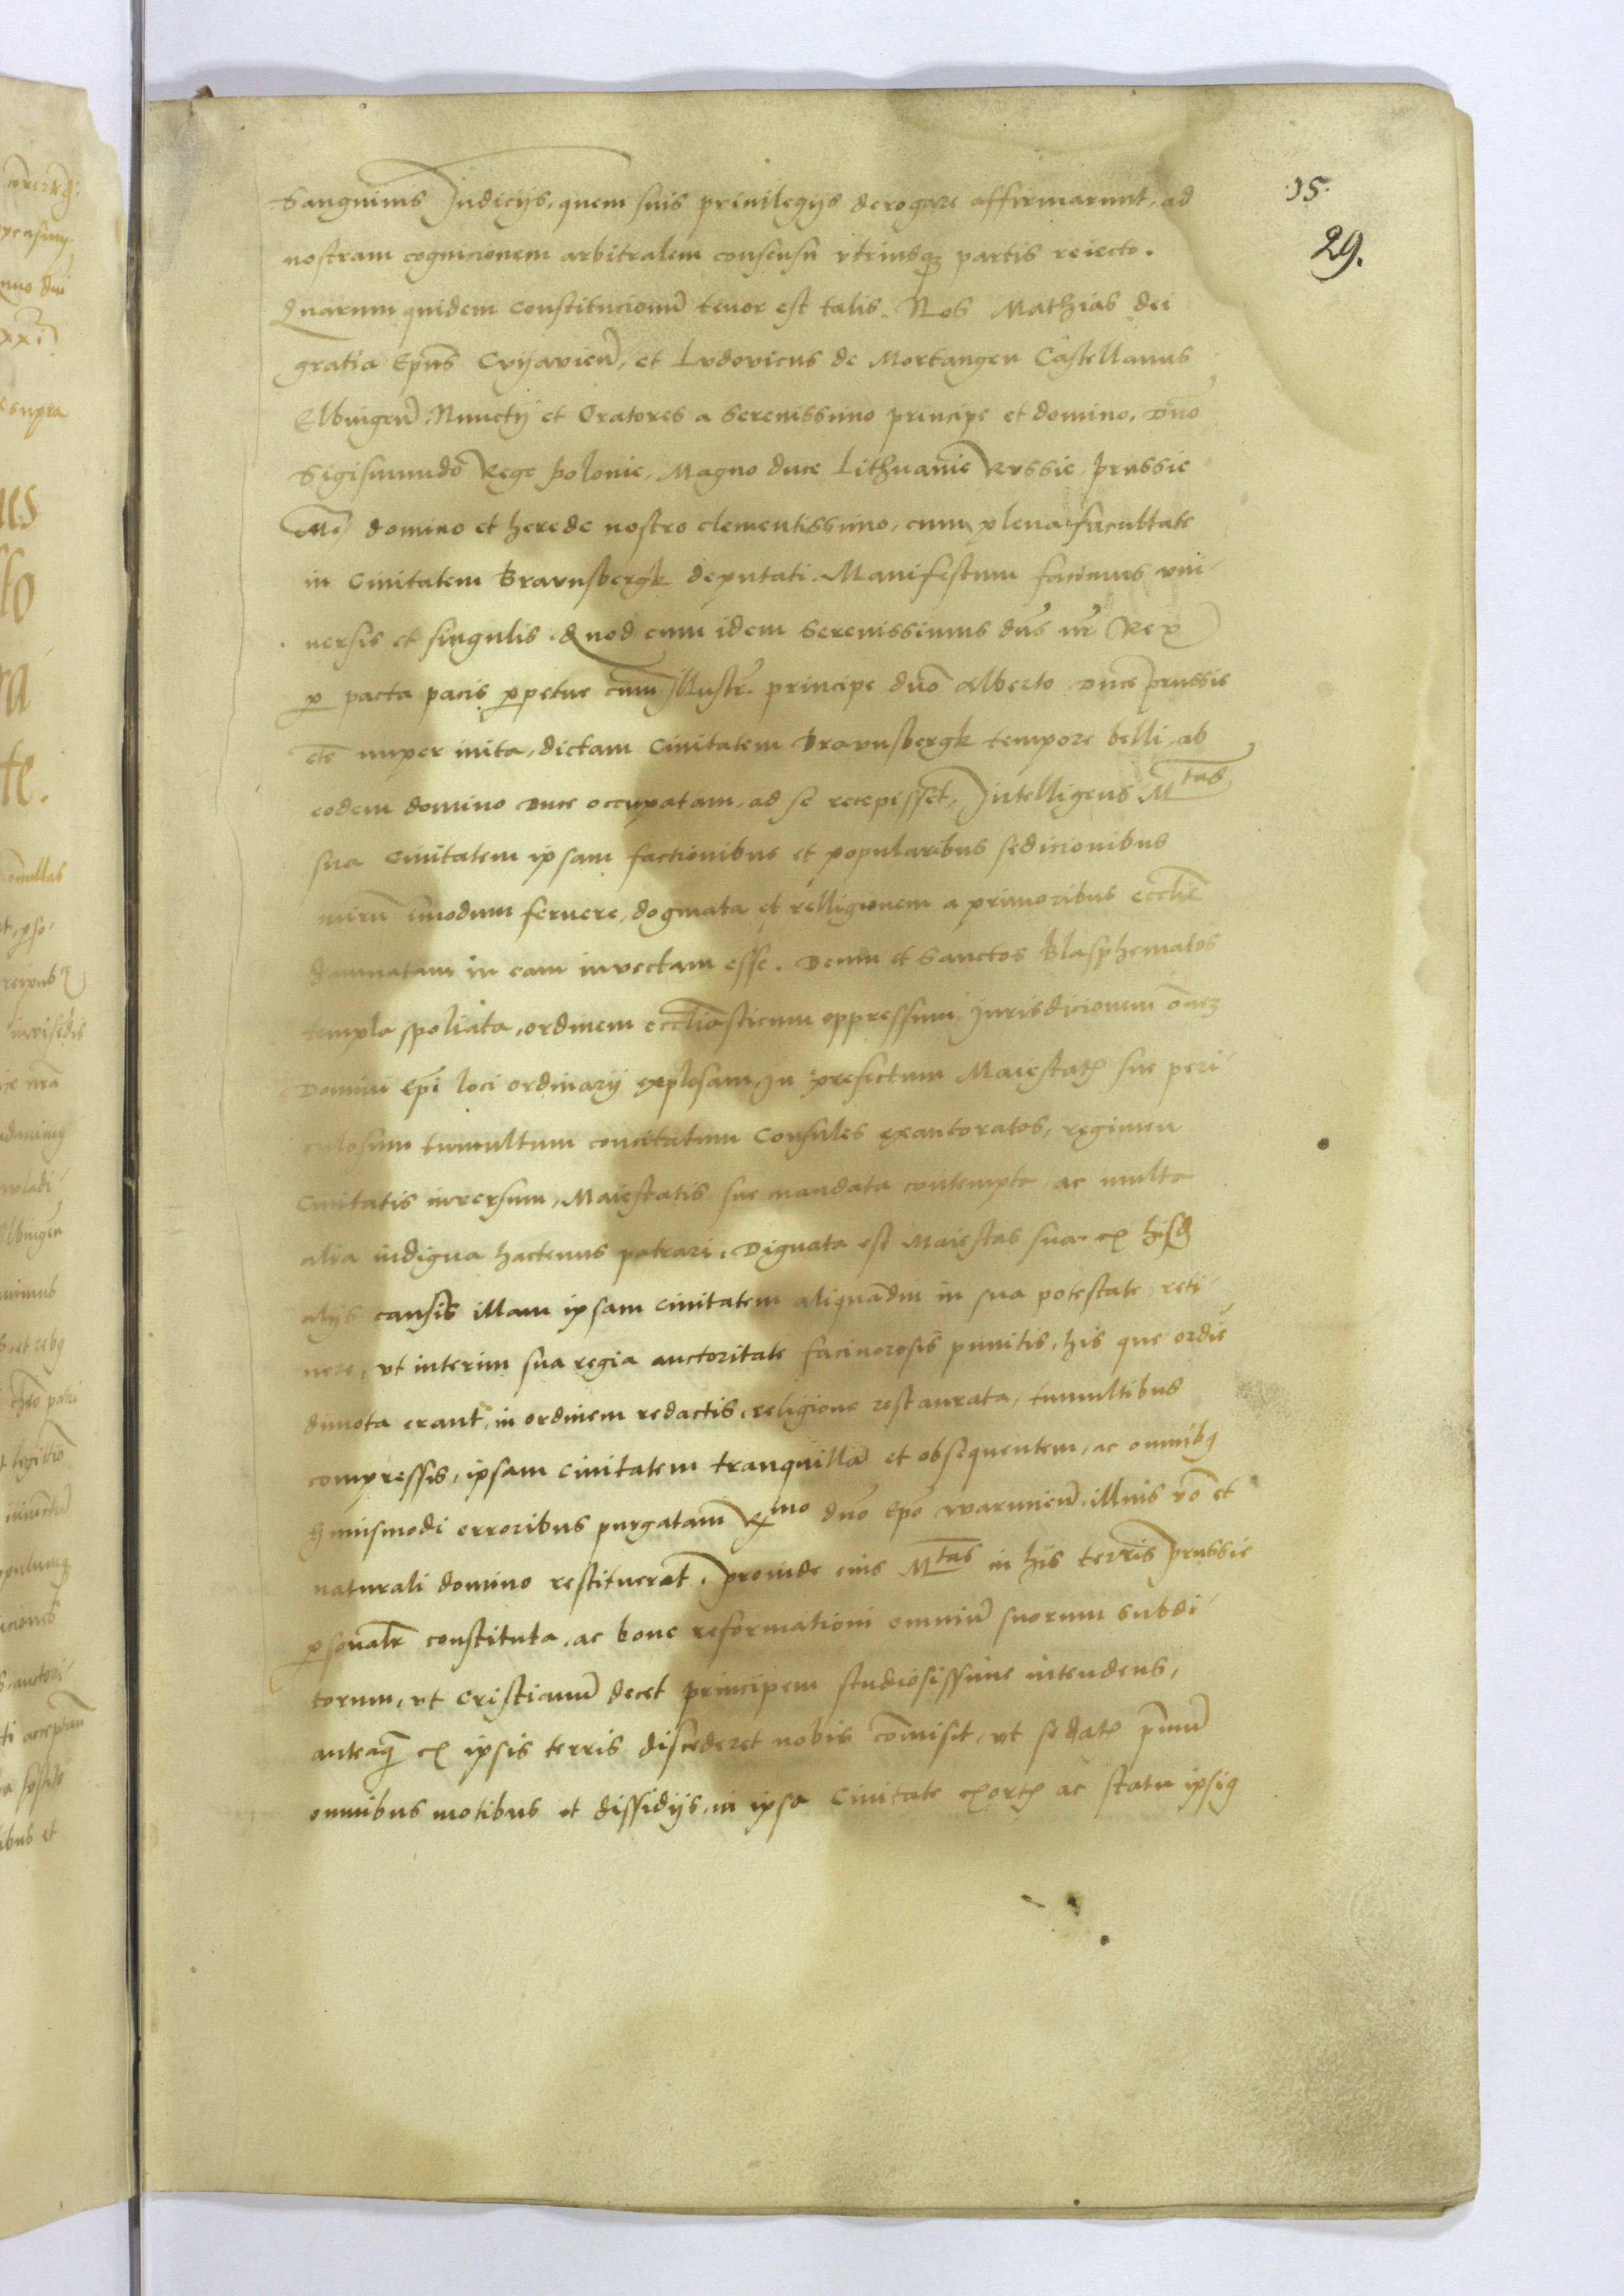 35.
29.
Sanguinis Judicijs, quem suis priuilegijs derogare affirmarunt, ad
nostram cognicionem arbitralem consensu vtriusq partis reiecto.
Quarum quidem constitucionũ tenor est talis. Nos Mathias dei
gratia Ep̃us Cvyavieñ, et Lvdovicus de Mortangen Castellanus
Elbingeñ, Nunctij et Oratores a Serenissimo principe et domino, Dño
Sigismundo Rege Polonie, Magno duce Lithuanie Russie Prussie
domino et herede nostro clementissimo, cum plena facultate
in Ciuitatem Bravnsbergk deputati. Manifestum facimus vni-
uersis et singulis. Quod cum idem Serenissimus dñs nr̃ Rex
p pacta pacis ppetue cum Illustr. principe dño Alberto Duce prussie
etc̃ nuper inita, dictam Ciuitatem Bravnsbergk tempore belli, ab
eodem domino Duce occupatam, ad se recepisset, Intelligens Mtas
sua Ciuitatem ipsam factionibus et popularibus sedicionibus
mirũ inmodum feruere, dogmata et relligionem a primoribus eccl̃ie
damnatam in eam invectam esse. Deum et Sanctos blasphematos
templa spoliata, ordinem eccl̃iasticum oppressum, Jurisdicionem õnez
Domini Ep̃i loci ordinarij explosam, In prefectum Maiestatꝭ sue peri-
culosum tumultum concitatum Consules exautoratos, regimen
Ciuitatis inversum, Maiestatis sue mandata contempta, ac multa
alia indigna hactenus patrari. Dignata est Maiestas sua ex hisq
alijs causis illam ipsam ciuitatem aliquãdiu in sua potestate reti-
nere, vt interim sua regia auctoritate facinorosis punitis, his que ordĩe
dimota erant, in ordinem redactis, religione restaurata, tumultibus
compressis, ipsam ciuitatem tranquillã et obsequentem, ac omnibꝰ
huiusmodi erroribus purgatam Rmo dño Ep̃o warmieñ. illius võ et
naturali domino restituerat. Proinde eius Mtas in hijs terris Prussie
psonalr̃ constituta, ac bone reformationi omniũ suorum subdi-
torum, vt cristianũ decet principem studiosissime intendens,
anteaq̃ ex ipsis terris discederet nobis cõmisit, vt sedatꝭ p̃mũ
omnibus motibus et dissidijs, in ipsa Ciuitate exortꝭ ac statu ipsiꝰ